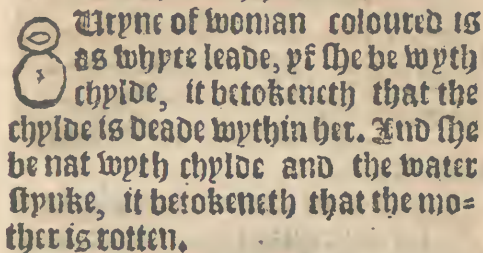 Uryne of woman coloured is
as whyte leade, yf she be wyth
chylde, it betokeneth that the
chylde is deade wythin her. And she
be nat wyth chylde and the water
stynke, it betokeneth that the mo=
ther is rotten.